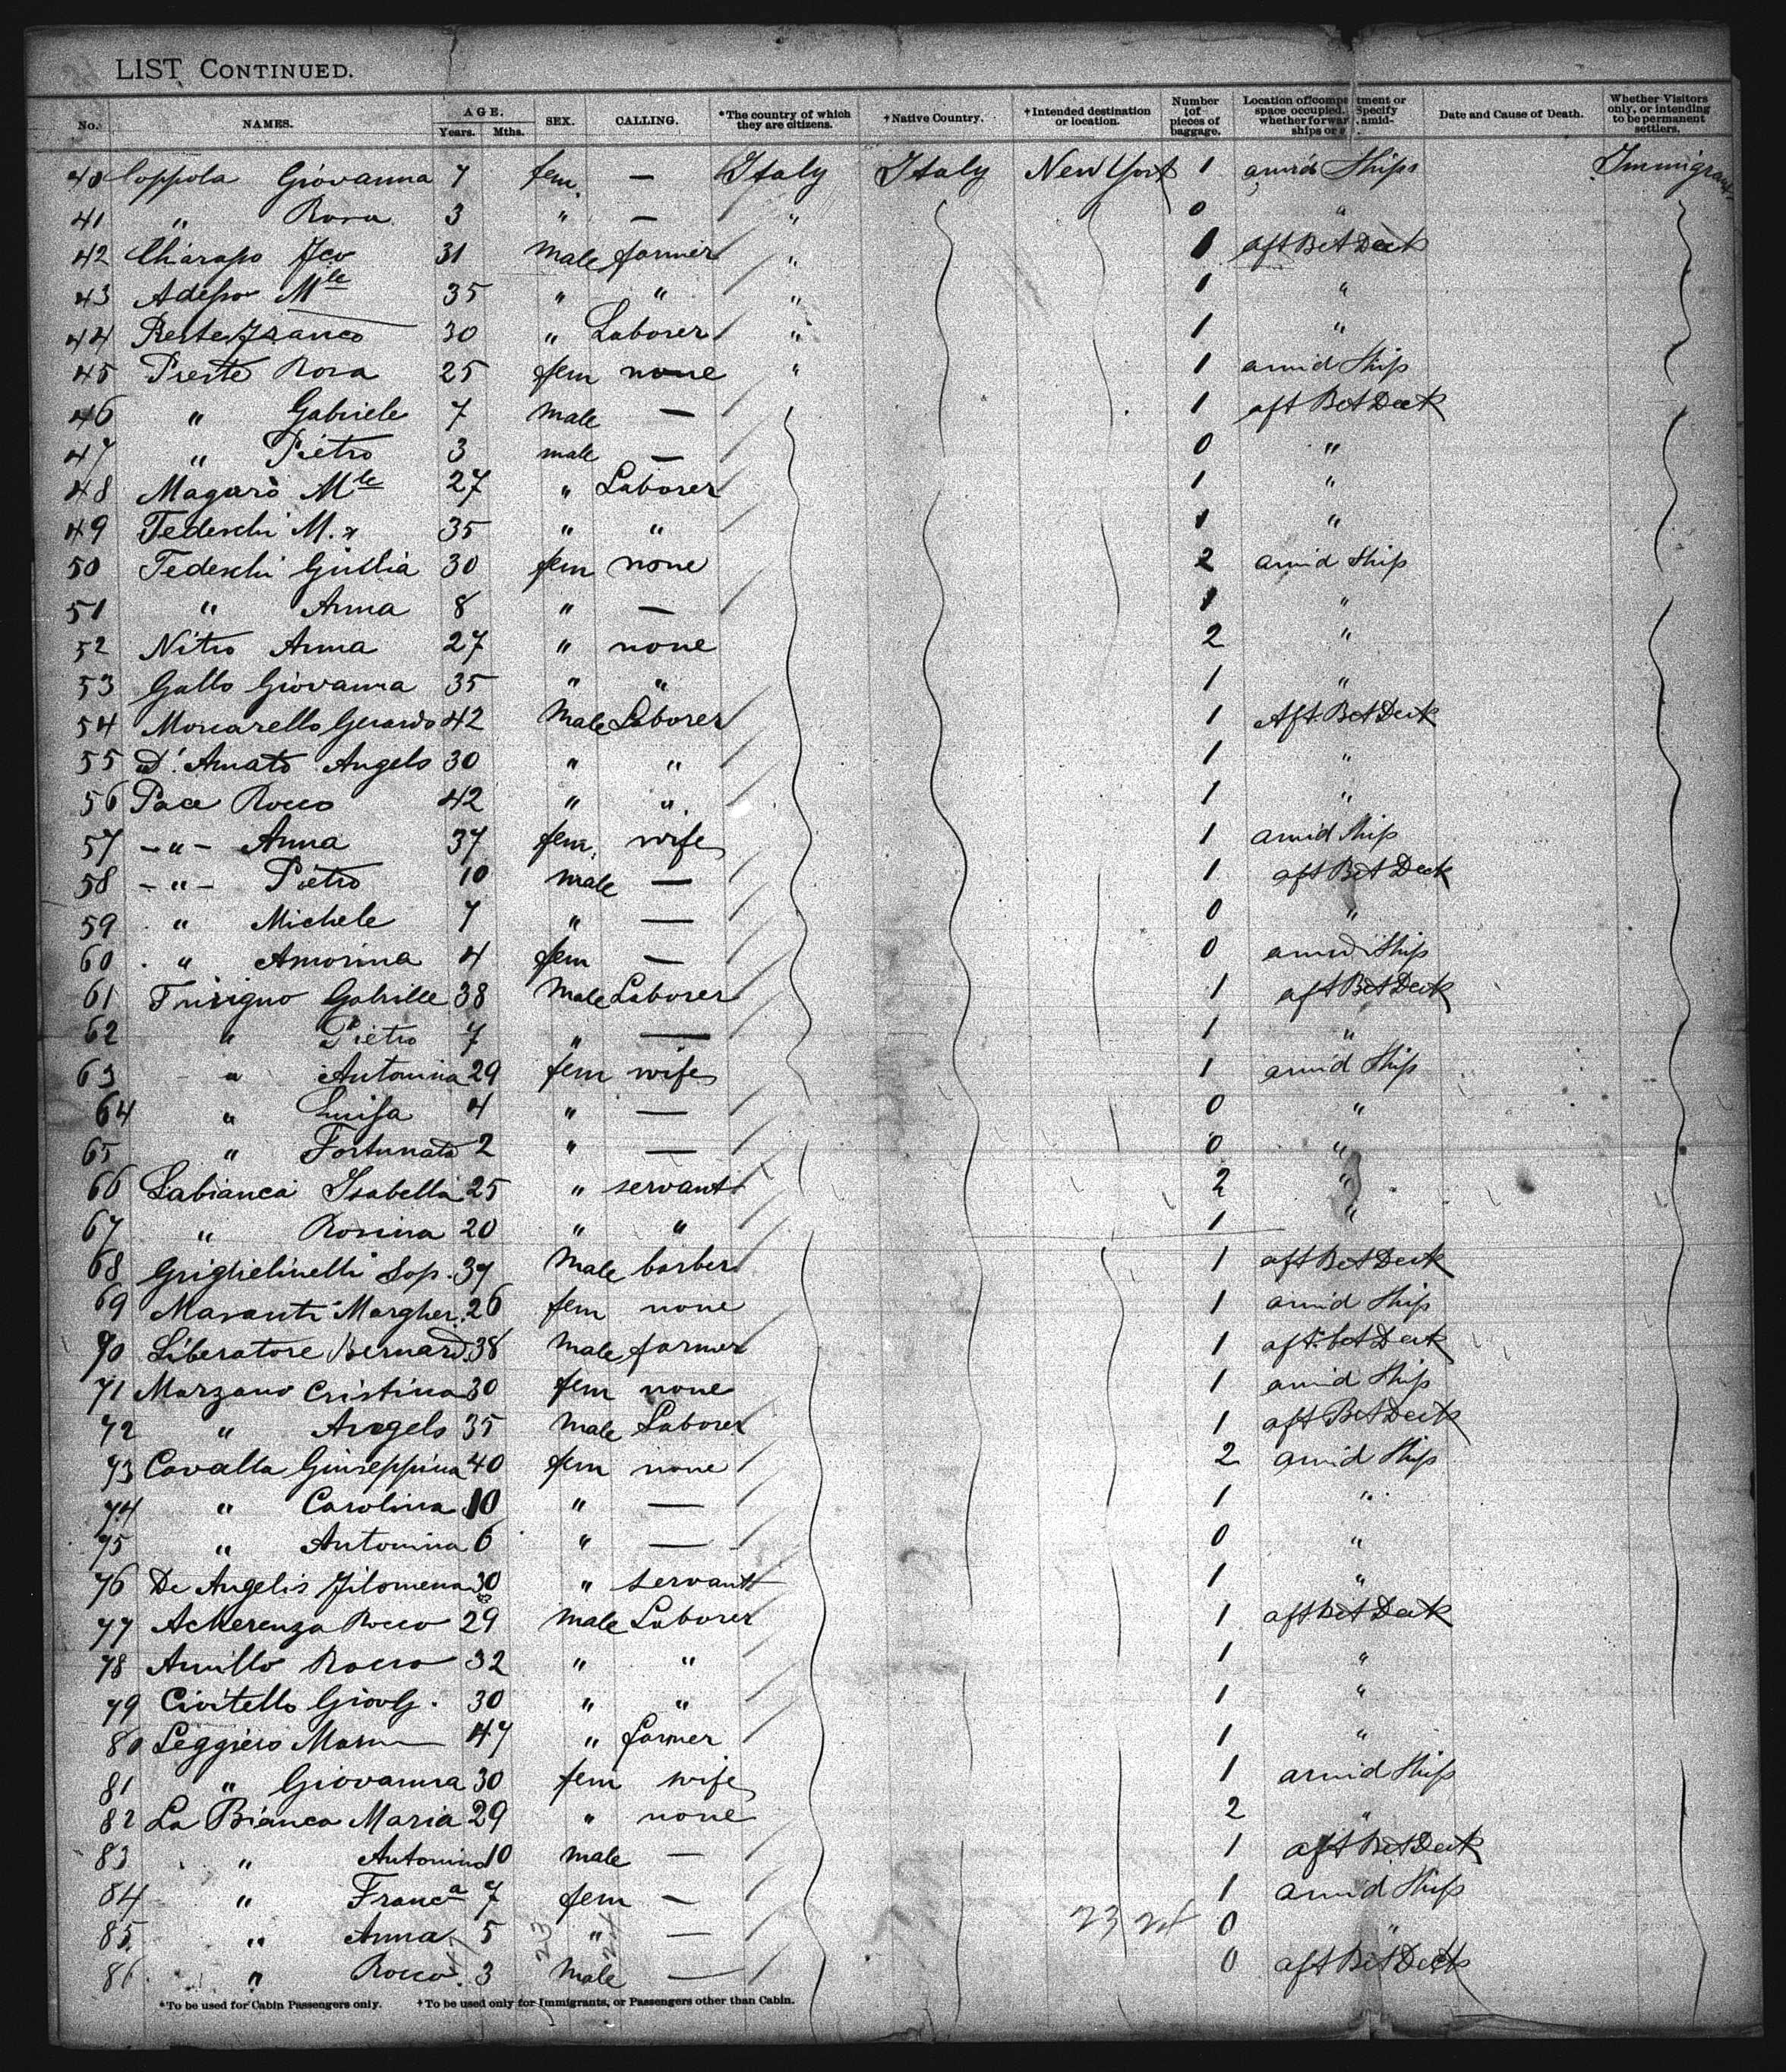 LIST CONTINUED.
No. NAMES. AGE. Years. Mths. SEX. CALLING. *The country of which they are citizens. †Native Country. †Intended destination or location. Number of pieces of baggage. Location of compartment or space occupied. Specify whether forward, amidships or Date and Cause of Death. Whether Visitors only, or intending to be permanent settlers.
40 Coppola Giovanna 7 fem. — Italy Italy New York 1 amid Ships Immigrant
41 " Rosa 3 " — " 0 "
42 31 Male farmer " 1 aft Bet Deck
43 Mle 35 " " " 1 "
44 Franco 30 " Laborer " 1 "
45 Preste Rosa 25 fem none " 1 amid Ship
46 " Gabriele 7 Male — 1 aft Bet Deck
47 " Pietro 3 male — 0 "
48 Magaro Mle 27 " Laborer 1 "
49 Tedeschi M. 35 " " 1 "
50 Tedeschi Giulia 30 fem none 2 amid Ship
51 " Anna 8 " — 1 "
52 Nitro Anna 27 " none 2 "
53 Gallo Giovanna 35 " " 1 "
54 Moncarello Gerardo 42 Male Laborer 1 Aft Bet Deck
55 D'Amato Angelo 30 " " 1 "
56 Pace Rocco 42 " " 1 "
57 — " — Anna 37 fem. wife 1 amid Ship
58 — " — Pietro 10 male — 1 aft Bet Deck
59 " Michele 7 " — 0 "
60 " Amorina 4 fem — 0 amid Ship
61 Gabrille 38 Male Laborer 1 aft Bet Deck
62 " Pietro 7 " — 1 "
63 " Antonina 29 fem wife 1 amid Ship
64 " Luisa 4 " — 0 "
65 " Fortunata 2 " — 0 "
66 Labianca Isabella 25 " servant 2 "
67 " Rosina 20 " " 1 "
68 Griglielinelli 39 Male barber 1 aft Bet Deck
69 Masanti Margher. 26 fem none 1 amid Ship
70 Liberatore Bernard. 38 Male farmer 1 aft. bet Deck
71 Marzano Cristina 30 fem none 1 amid Ship
72 " Angelo 35 Male Laborer 1 aft Bet Deck
73 Cavalla Giuseppina 40 fem none 2 amid Ship
74 " Carolina 10 " — 1 "
75 " Antonina 6 " — 0 "
76 De Angelis Filomena 30 " servant 1 "
77 Acherenza Rocco 29 Male Laborer 1 aft bet Deck
78 Amillo Rocco 32 " " 1 "
79 Civitello 30 " " 1 "
80 Leggiero 47 " farmer 1 "
81 " Giovanna 30 fem wife 1 amid Ship
82 La Bianca Maria 29 " none 2 "
83 " Antonino 10 Male — 1 aft Bet Deck
84 " Franca 7 fem — 1 amid Ship
85 " Anna 5 " — 23 24 0 "
86 " Rocco 3 Male — 0 aft Bet Deck
*To be used for Cabin Passengers only. †To be used only for Immigrants, or Passengers other than Cabin.